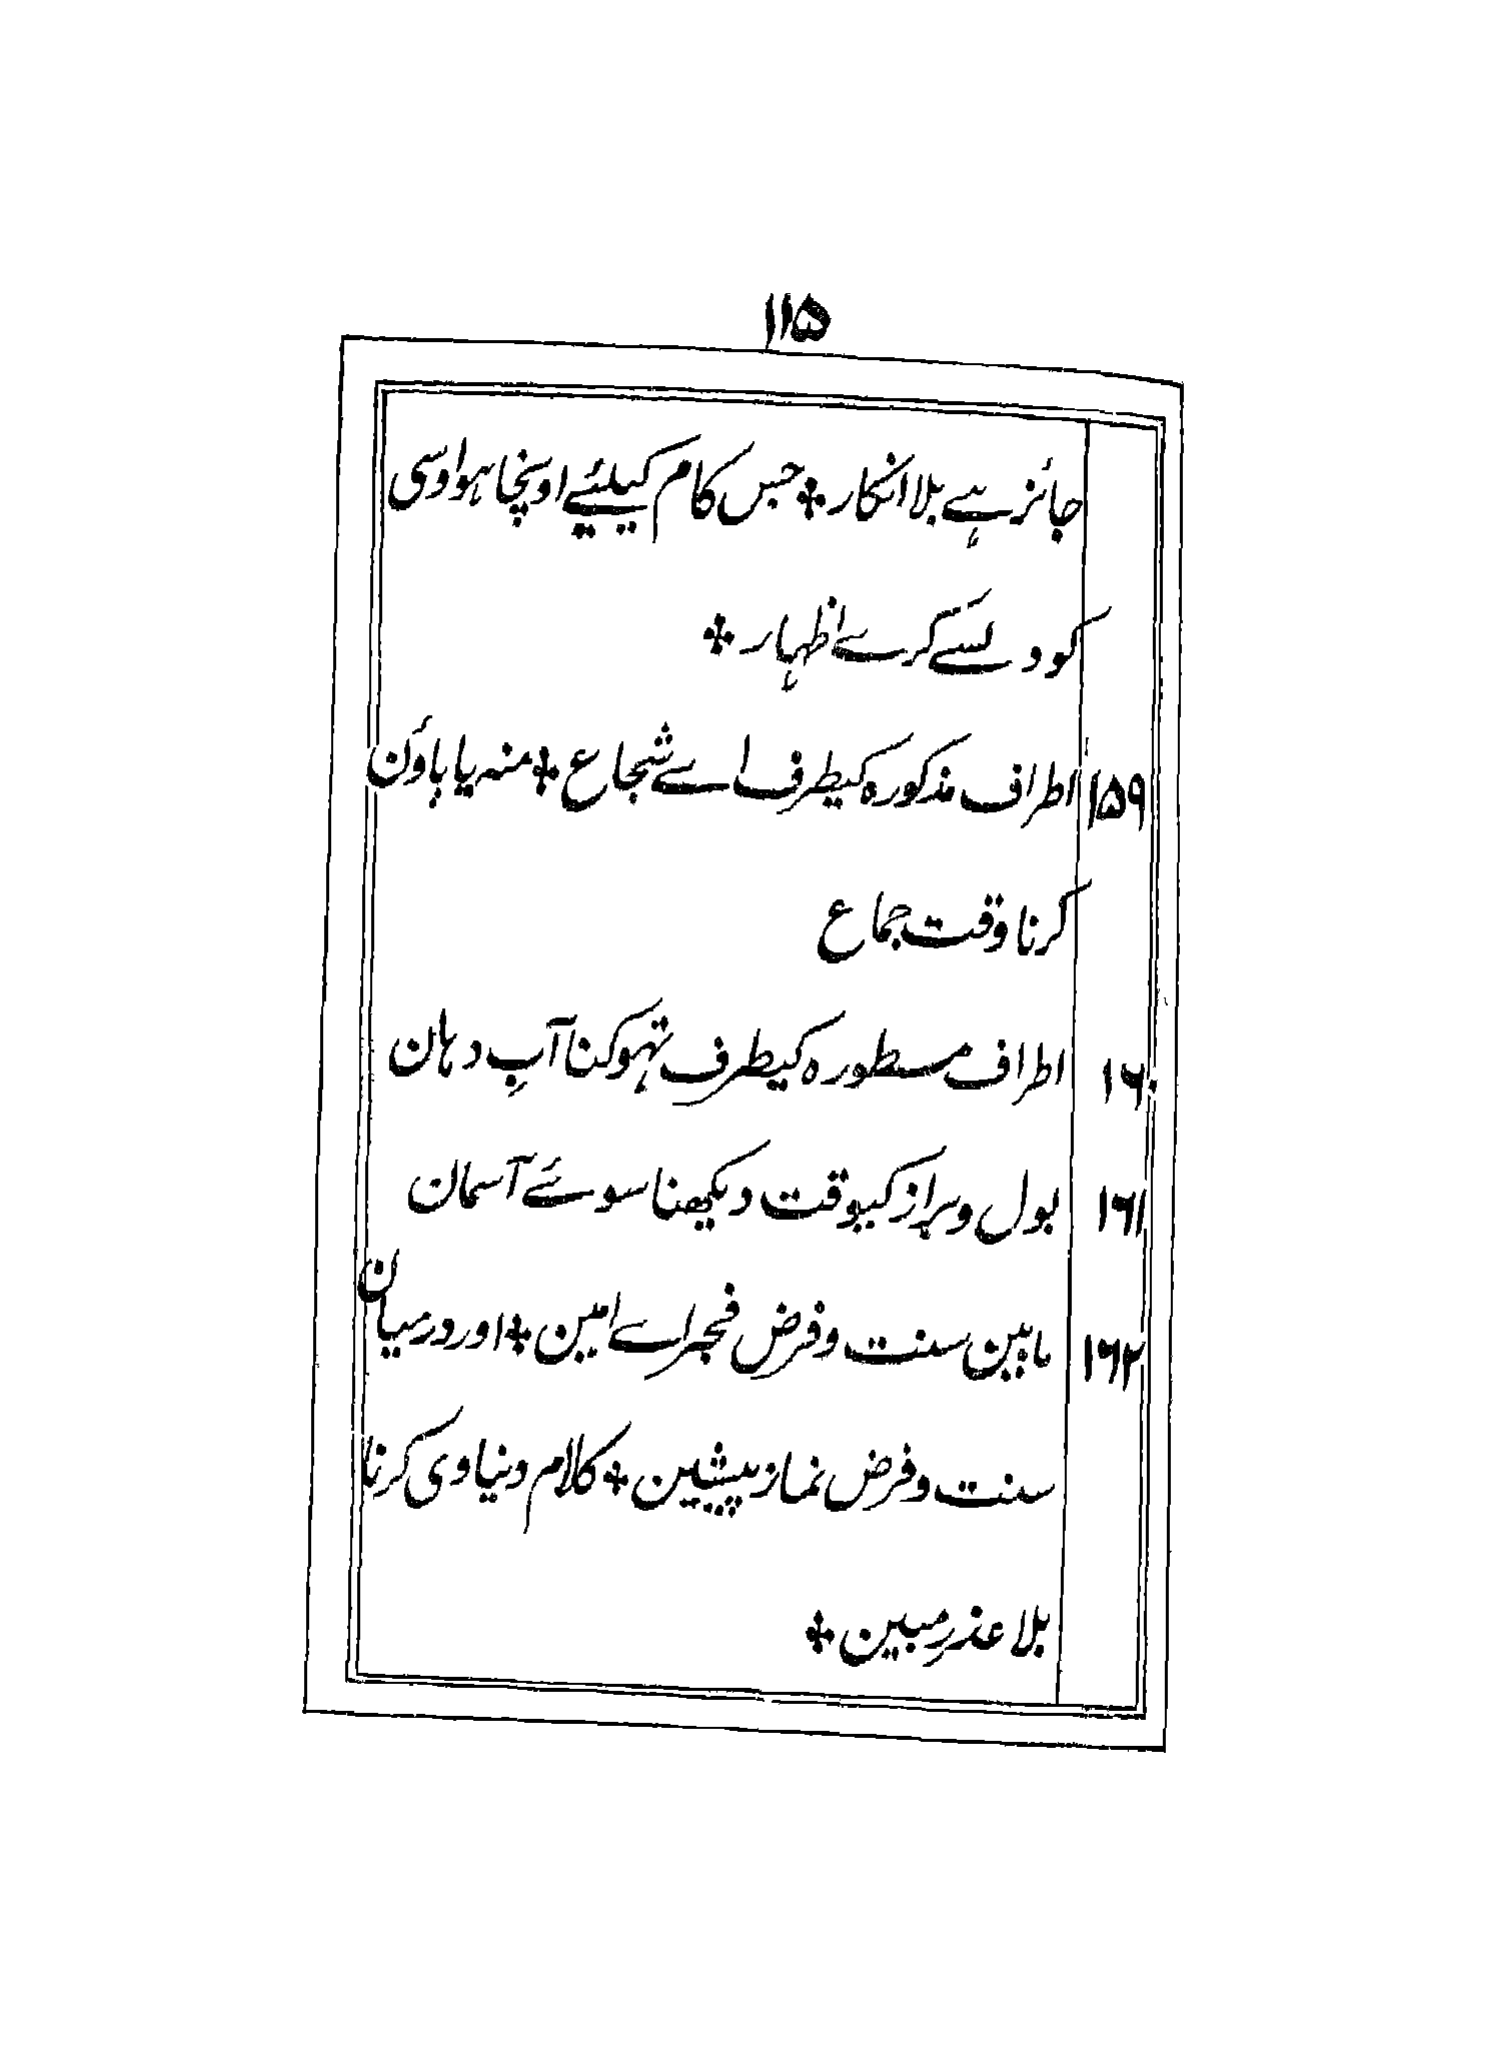 ۱۱۵
جائز ہے بلا انکار ❖ جس کام کیلئیے اونچا ہوا وسی
کو ویسے کرے اظہار ❖
۱۵۹ اطراف مذکورہ کیطرف اے شجاع ❖ منہ یا پاؤن
کرنا وقت جماع
۱۶۰ اطراف مسطورہ کیطرف تہوکنا آبِ دہان
۱۶۱ بول و براز کیوقت دیکھنا سوئے آسمان
۱۶۲ مابین سنت و فرض فجر اے امین ❖ اور درمیان
سنت و فرض نماز پیشین ❖ کلام دنیاوی کرنا
بلا عذرِ مبین ❖